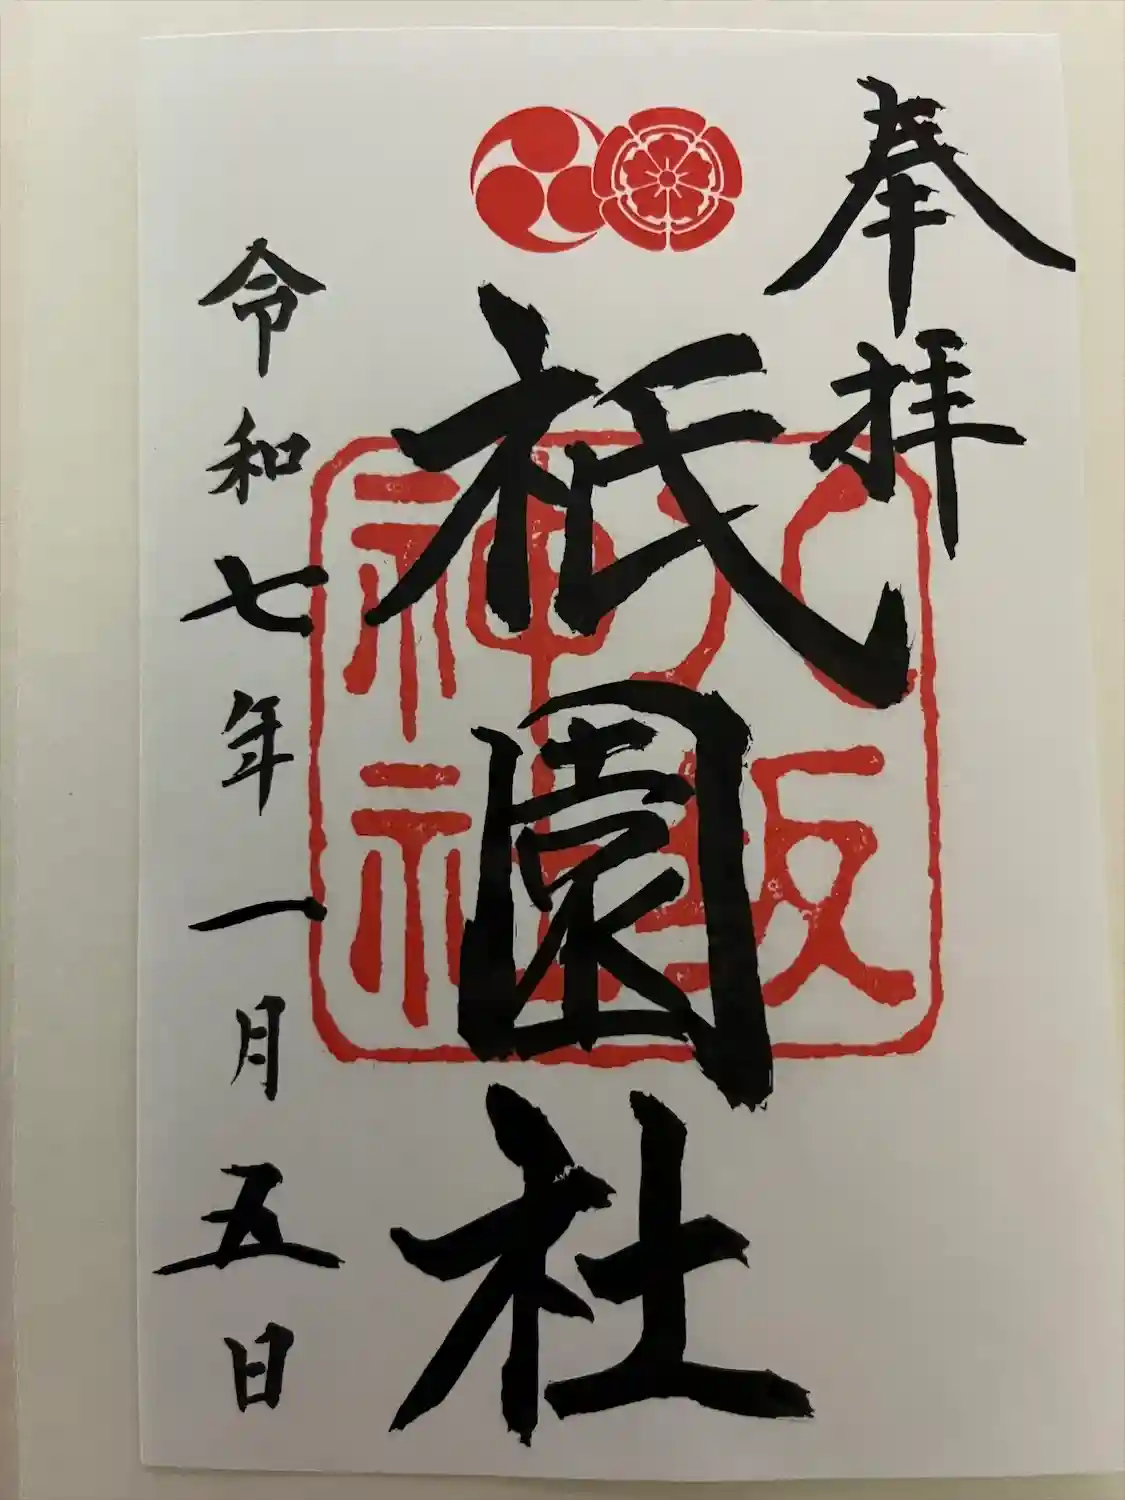 奉拝
祇園社
八坂
神社
令和七年一月五日